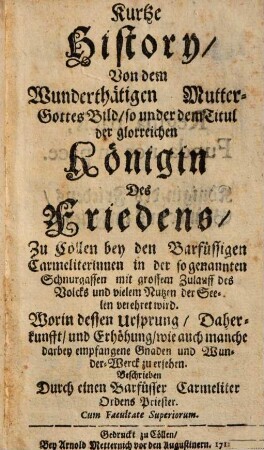 Kurtze
History/
Von dem
Wunderthätigen Mutter-
Gottes Bild/ so under dem Titul
der glorreichen
Königin
Des
Friedens/
Zu Cöllen bey den Barfüssigen
Carmeliterinnen in der sogenannten
Schnurgassen mit grossem Zulauff des
Volcks und vielem Nutzen der See-
len verehret wird.
Worin dessen Ursprung/ Daher-
kunfft/ und Erhöhung/ wie auch manche
darbey empfangene Gnaden und Wun-
der-Werck zu ersehen.
Beschrieben
Durch einen Barfüsser Carmeliter
Ordens Priester.
Cum Facultate Superiorum.
Gedruckt zu Cöllen/
Bey Arnold Metternich vor den Augustinern. 171